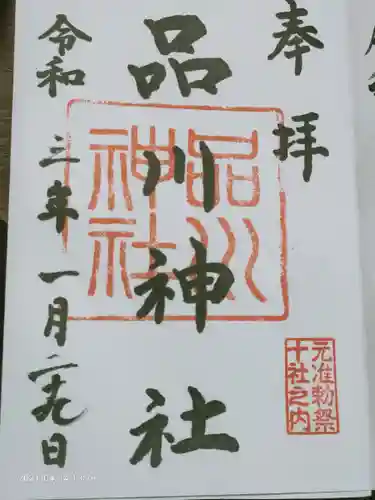 奉拝
品川神社
令和三年一月二九日
品川
神社
元准勅祭
十社之内